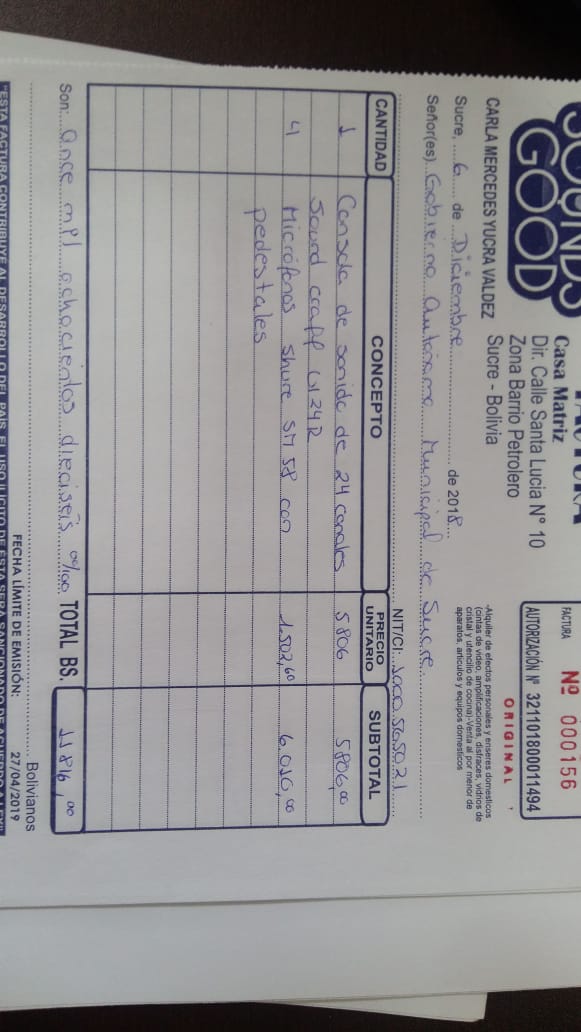 SOUNDS
GOOD
FACTURA
Casa Matriz
Dir. Calle Santa Lucia N° 10
Zona Barrio Petrolero
Sucre - Bolivia
CARLA MERCEDES YUCRA VALDEZ
FACTURA Nº 000156
AUTORIZACIÓN Nº 321101800011494
ORIGINAL
-Alquiler de efectos personales y enseres domesticos
(cintas de video, amplificaciones, disfraces, vidrios de
cristal y utencilio de cocina)-Venta al por menor de
aparatos, articulos y equipos domesticos
Sucre, 6 de Diciembre de 2018
Señor(es) Gobierno Autónomo Municipal de Sucre
NIT/CI: 1000565021
CANTIDAD CONCEPTO PRECIO UNITARIO SUBTOTAL
1 Consola de sonido de 24 canales 5806 5806,00
Sound craff UI24R
4 Micrófonos Shure SM58 con 1.502,60 6.010,00
pedestales
Son: Once mil ochocientos dieciseis 00/100 TOTAL BS. 11816,00
Bolivianos
FECHA LÍMITE DE EMISIÓN: 27/04/2019
"ESTA FACTURA CONTRIBUYE AL DESARROLLO DEL PAÍS, EL USO ILÍCITO DE ÉSTA SERÁ SANCIONADO DE ACUERDO A LEY"